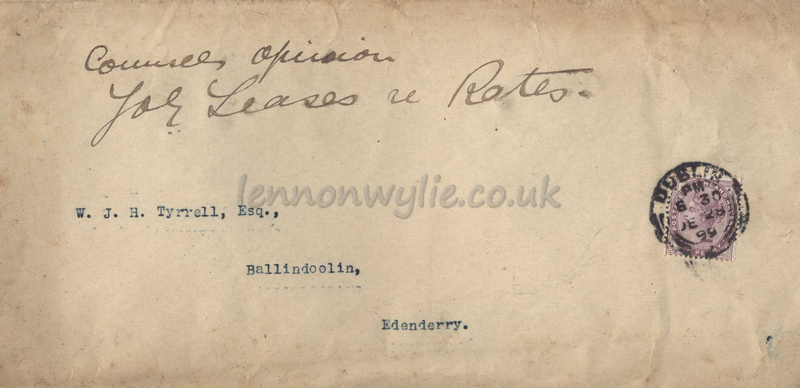 Counsels Opinion
Leases re Rates.
lennonwylie.co.uk
W. J. H. Tyrrell, Esq.,
Ballindoolin,
Edenderry.
DUBLIN
PM
6 30
DE 28
99